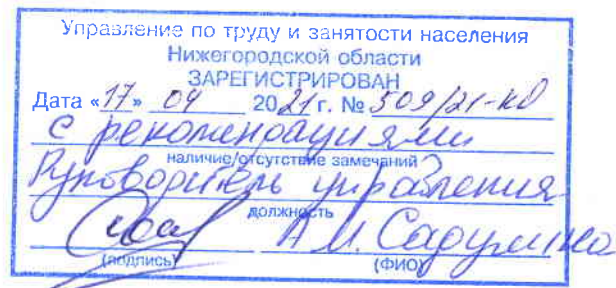 Управление по труду и занятости населения
Нижегородской области
ЗАРЕГИСТРИРОВАН
Дата «17» 04 2021 г. № 509/21-КД
с рекомендациями
наличие/отсутствие замечаний
Руководитель управления
должность
А.М. Садулина
(подпись) (ФИО)